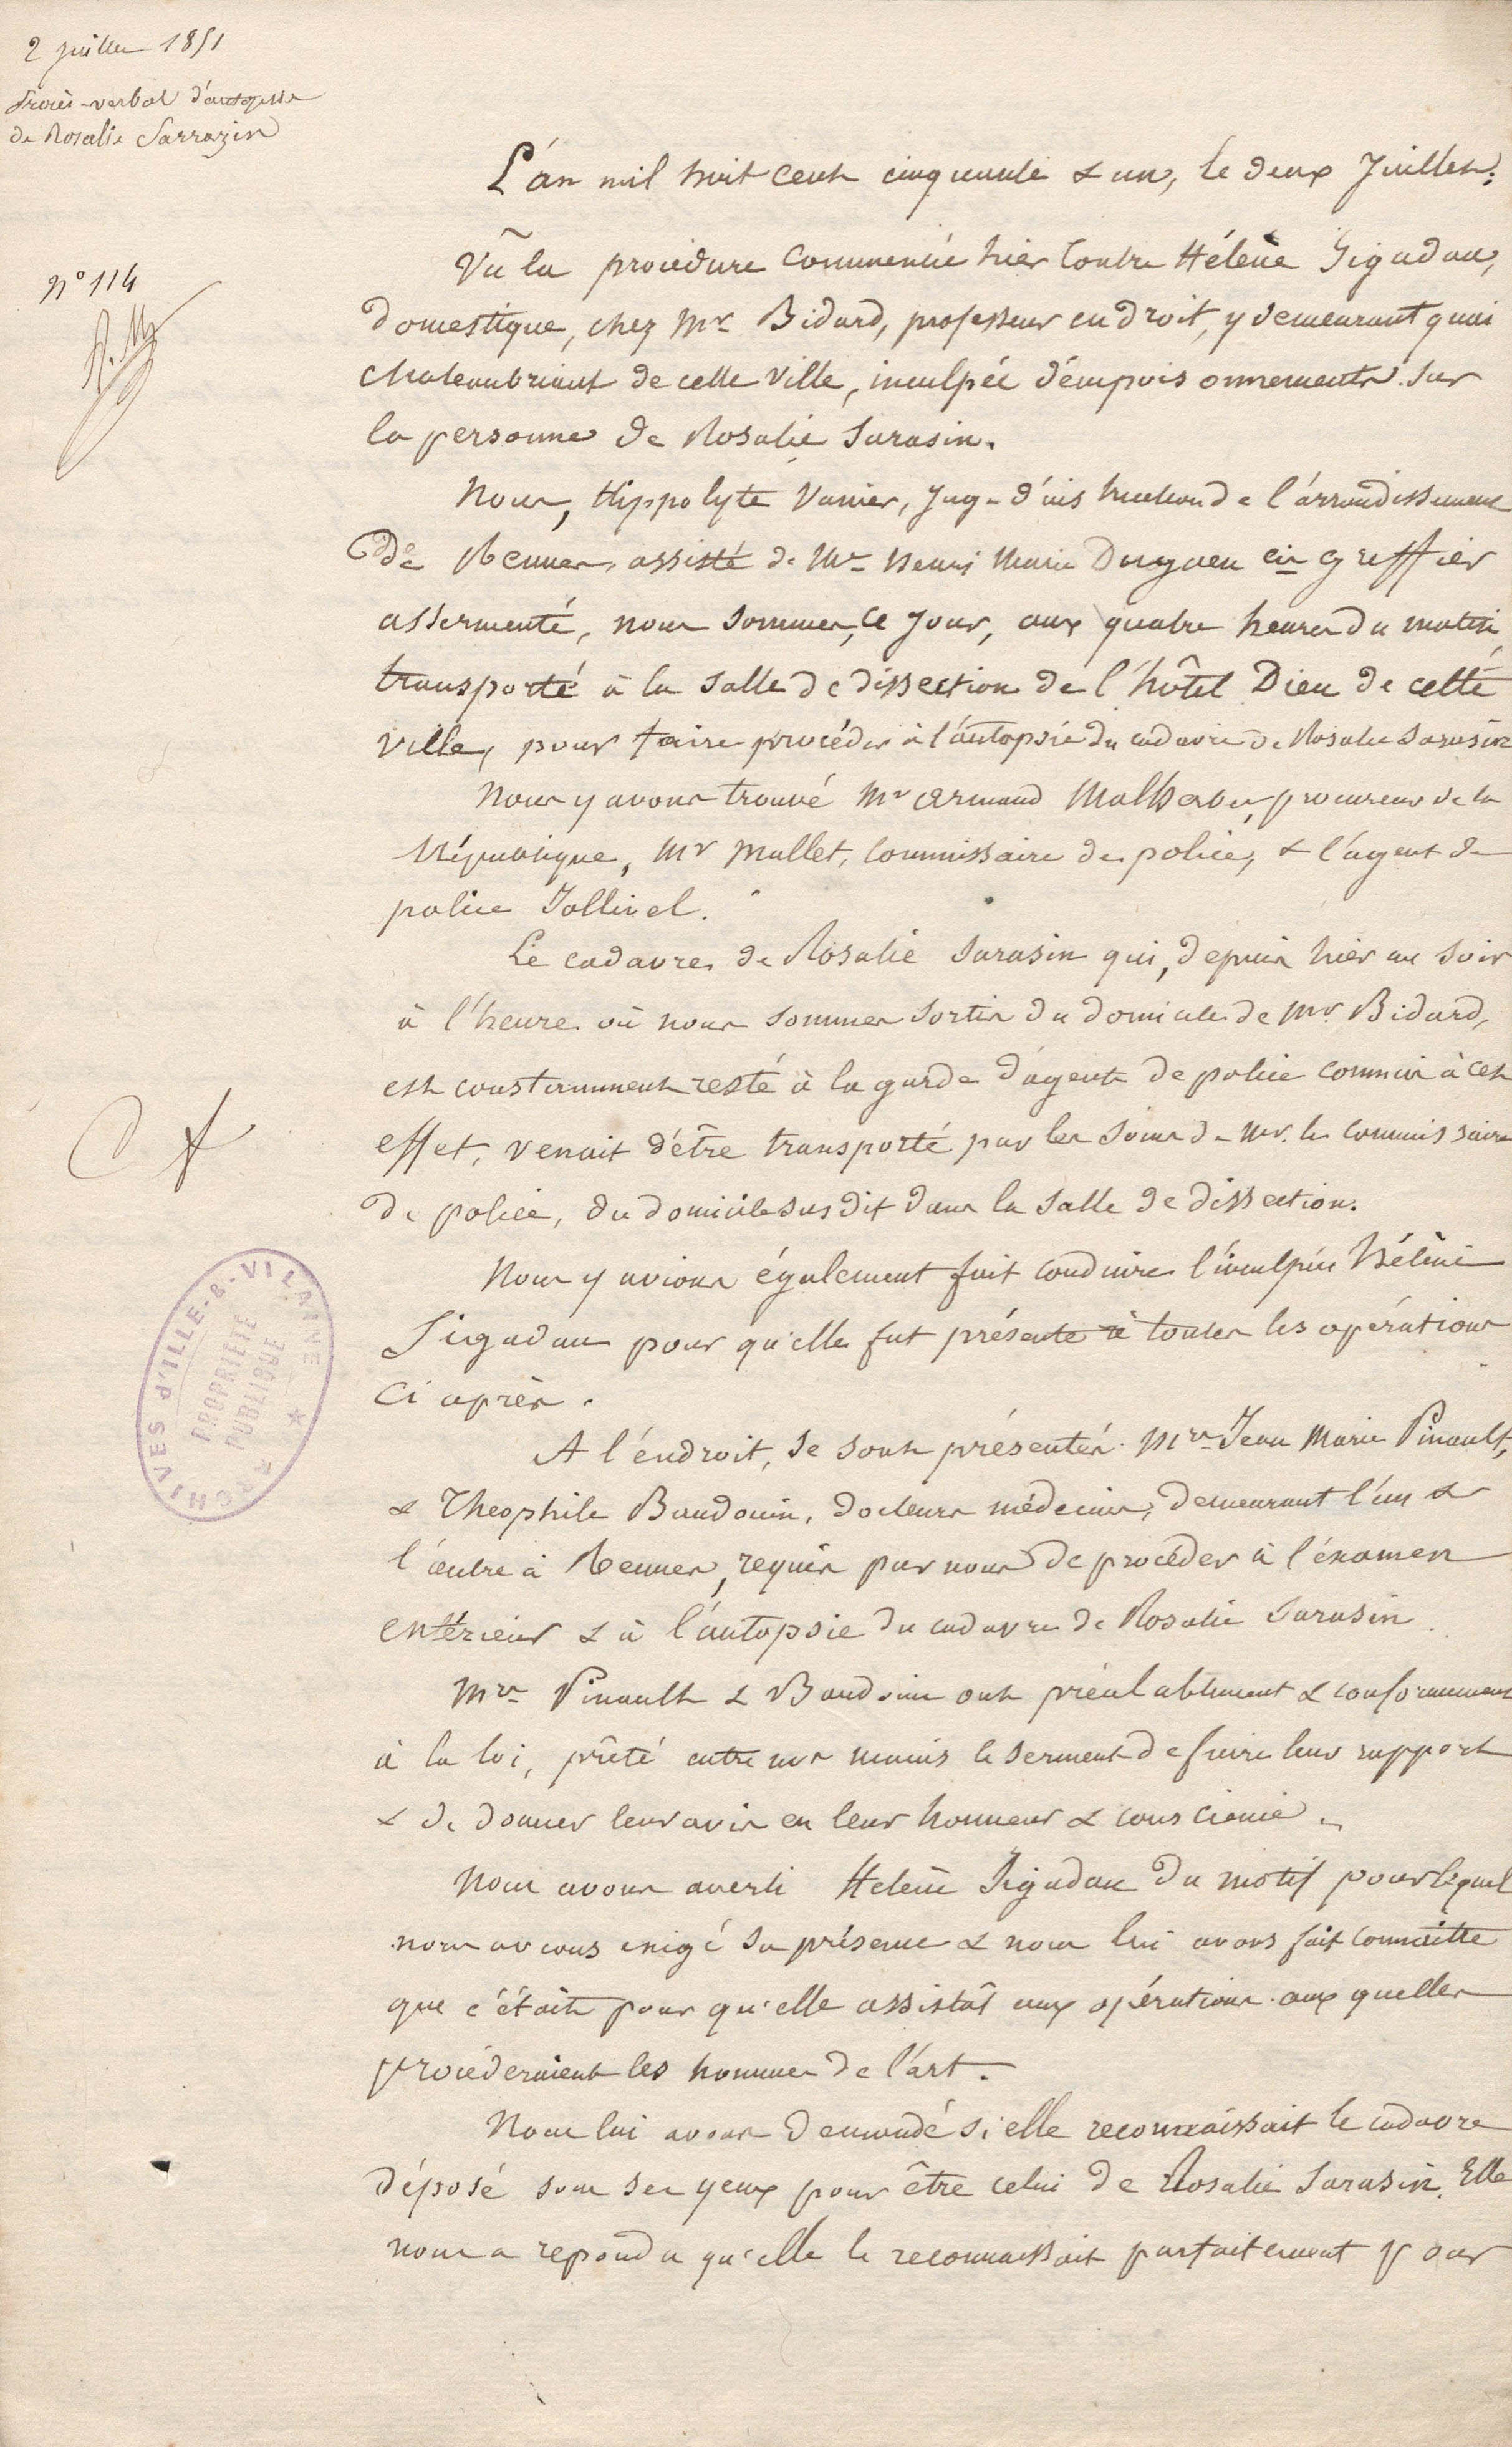 2 juillet 1851
Procès-verbal d'autopsie
de Rosalie Sarrazin
L'an mil huit cent cinquante & un, le deux Juillet;
n° 114
Vu la procédure commencée hier contre Hélène Jigadau,
domestique, chez Mr Bidard, professeur en droit, y demeurant quai
chateaubriant de cette ville, inculpée d'empoisonnements sur
la personne de Rosalie Sarasin.
Nous, Hippolyte Vanier, Juge d'instruction de l'arrondissement
de Rennes, assisté de Mr Henri Marie greffier
assermenté, nous sommes, ce jour, aux quatre heures du matin
transporté à la salle de dissection de l'hôtel Dieu de cette
ville, pour faire procéder à l'autopsie du cadavre de Rosalie Sarasin
Nous y avons trouvé Mr Armand Malherbe, procureur de la
République, Mr Mallet, Commissaire de police, & l'agent de
police Jollivel.
Le cadavre de Rosalie Sarasin qui, depuis hier au soir
à l'heure où nous sommes sortis du domicile de Mr Bidard,
est constamment resté à la garde d'agents de police commis à cet
effet, venait d'être transporté par les soins de Mr. le Commissaire
de police, du domicile susdit dans la salle de dissection.
Nous y avions également fait conduire l'inculpée Hélène
Jigadau pour qu'elle fut présente à toutes les opérations
ci après.
A l'endroit, se sont présentés Mrs Jean Marie Pinault,
& Theophile Baudouin, docteurs médecins, demeurant l'un &
l'autre à Rennes, requis par nous de procéder à l'examen
extérieur & à l'autopsie du cadavre de Rosalie Sarasin.
Mrs Pinault & Baudouin ont préalablement & conformément
à la loi, prêté entre nos mains le serment de faire leur rapport
& de donner leur avis en leur honneur & conscience.
Nous avons averti Helène Jigadau du motif pour lequel
nous avions exigé sa présence & nous lui avons fait connaitre
que c'était pour qu'elle assistât aux opérations aux quelles
procéderaient les hommes de l'art.
Nous lui avons demandé si elle reconnaissait le cadavre
déposé sous ses yeux pour être celui de Rosalie Sarasin. Elle
nous a répondu qu'elle le reconnaissait parfaitement pour
ARCHIVES d'ILLE-&-VILAINE
PROPRIÉTÉ
PUBLIQUE